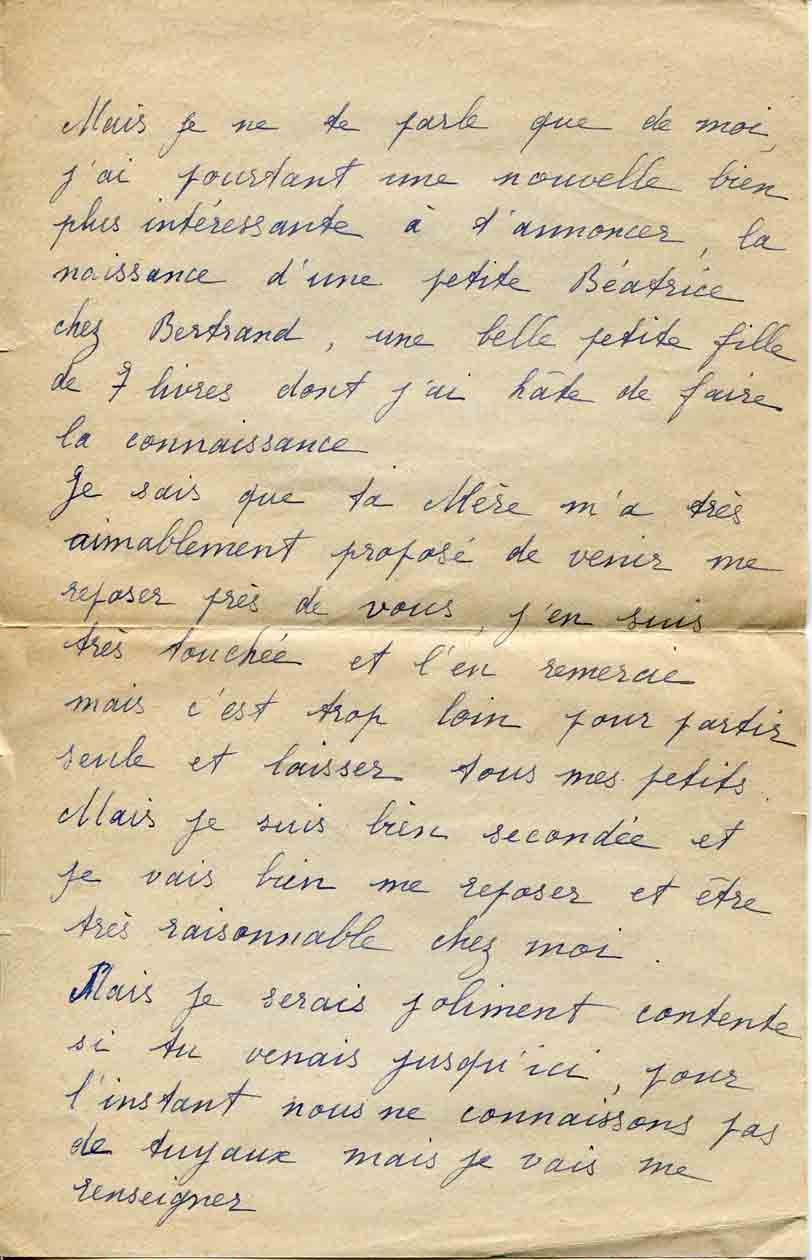 Mais je ne te parle que de moi,
j'ai pourtant une nouvelle bien
plus intéressante à t'annoncer, la
naissance d'une petite Béatrice
chez Bertrand, une belle petite fille
de 7 livres dont j'ai hâte de faire
la connaissance
Je sais que ta Mère m'a très
aimablement proposé de venir me
reposer près de vous, j'en suis
très touchée et l'en remercie
mais c'est trop loin pour partir
seule et laisser tous mes petits.
Mais je suis bien secondée et
je vais bien me reposer et être
très raisonnable chez moi.
Mais je serais joliment contente
si tu venais jusqu'ici, pour
l'instant nous ne connaissons pas
de tuyaux mais je vais me
renseigner